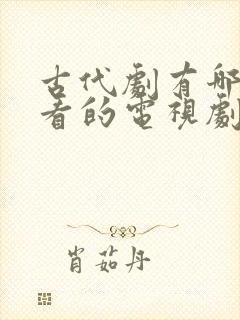 古代劇有哪
看的電視劇
肖茹丹